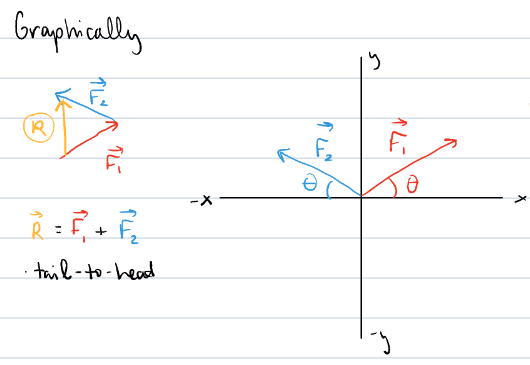 Graphically
F₂
R
F₁
R = F₁ + F₂
· tail-to-head
y
F₂ F₁
θ θ
-x x
-y